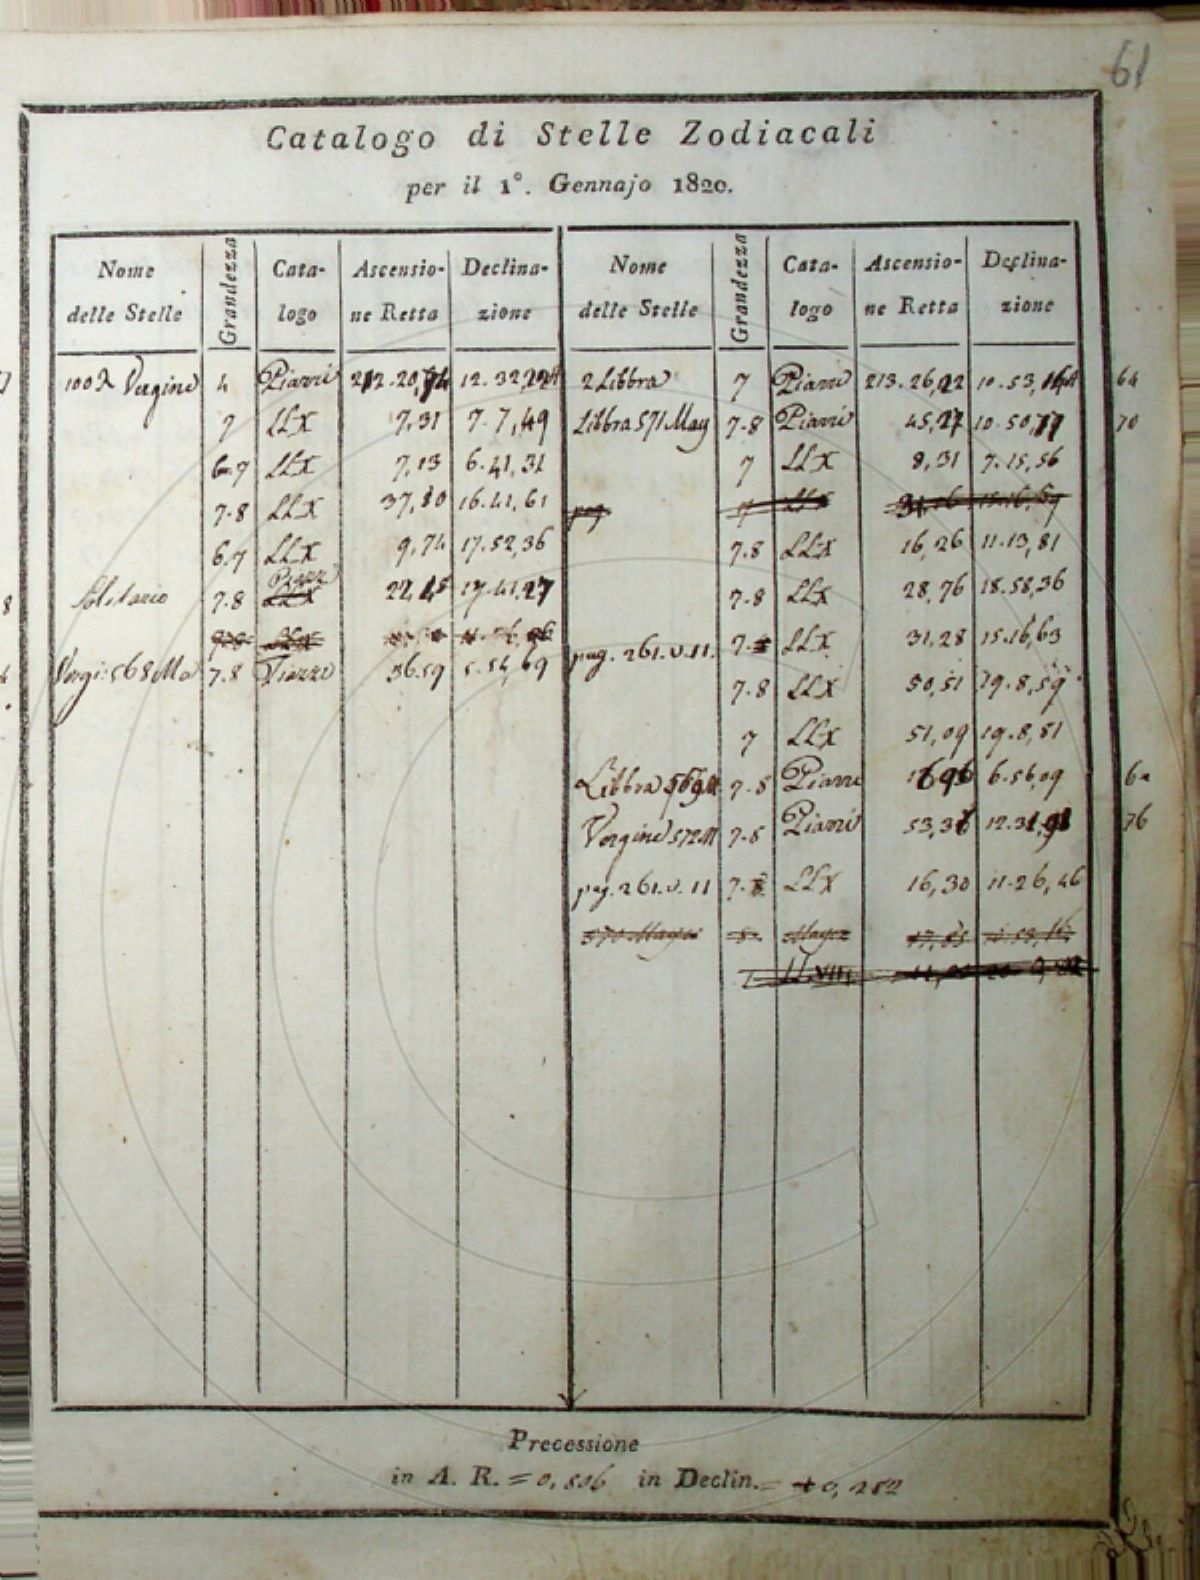 61
Catalogo di Stelle Zodiacali
per il 1°. Gennajo 1820.
Nome delle Stelle Grandezza Cata-logo Ascensio-ne Retta Declina-zione Nome delle Stelle Grandezza Cata-logo Ascensio-ne Retta Declina-zione
100 λ Vergine 4 Piazzi 212.20, 12.32, 2 Libbra 7 Piazzi 213.26, 10.53, 64
7 LLX 7,31 7.7,49 Libbra 571 May 7.8 Piazzi 45, 10.50, 70
6.7 LLX 7,13 6.41,31 7 LLX 8,31 7.15,56
7.8 LLX 37,80 16.41,61 pag 7 LLX
6.7 LLX 9,74 17.52,36 7.8 LLX 16,26 11.13,81
Solitario 7.8 Piazzi LLX 17.41,27 7.8 LLX 28,76 18.58,36
7.8 LLX pag. 261.v.11. 7. LLX 31,28 15.16,63
Vergi: 568 Ma 7.8 Piazzi 36.59 5.54,69 7.8 LLX 50,51 19.8,59
7 LLX 51,09 19.8,81
Libbra 569 M 7.8 Piazzi 6.56,09
Vergine 572 M 7.8 Piazzi 53, 12.31, 76
pag. 261.v.11 7. LLX 16,30 11.26,46
570 Mayer 8. Mayer
LL.VIII,
Precessione
in A. R. = 0,806 in Declin. = +0,282